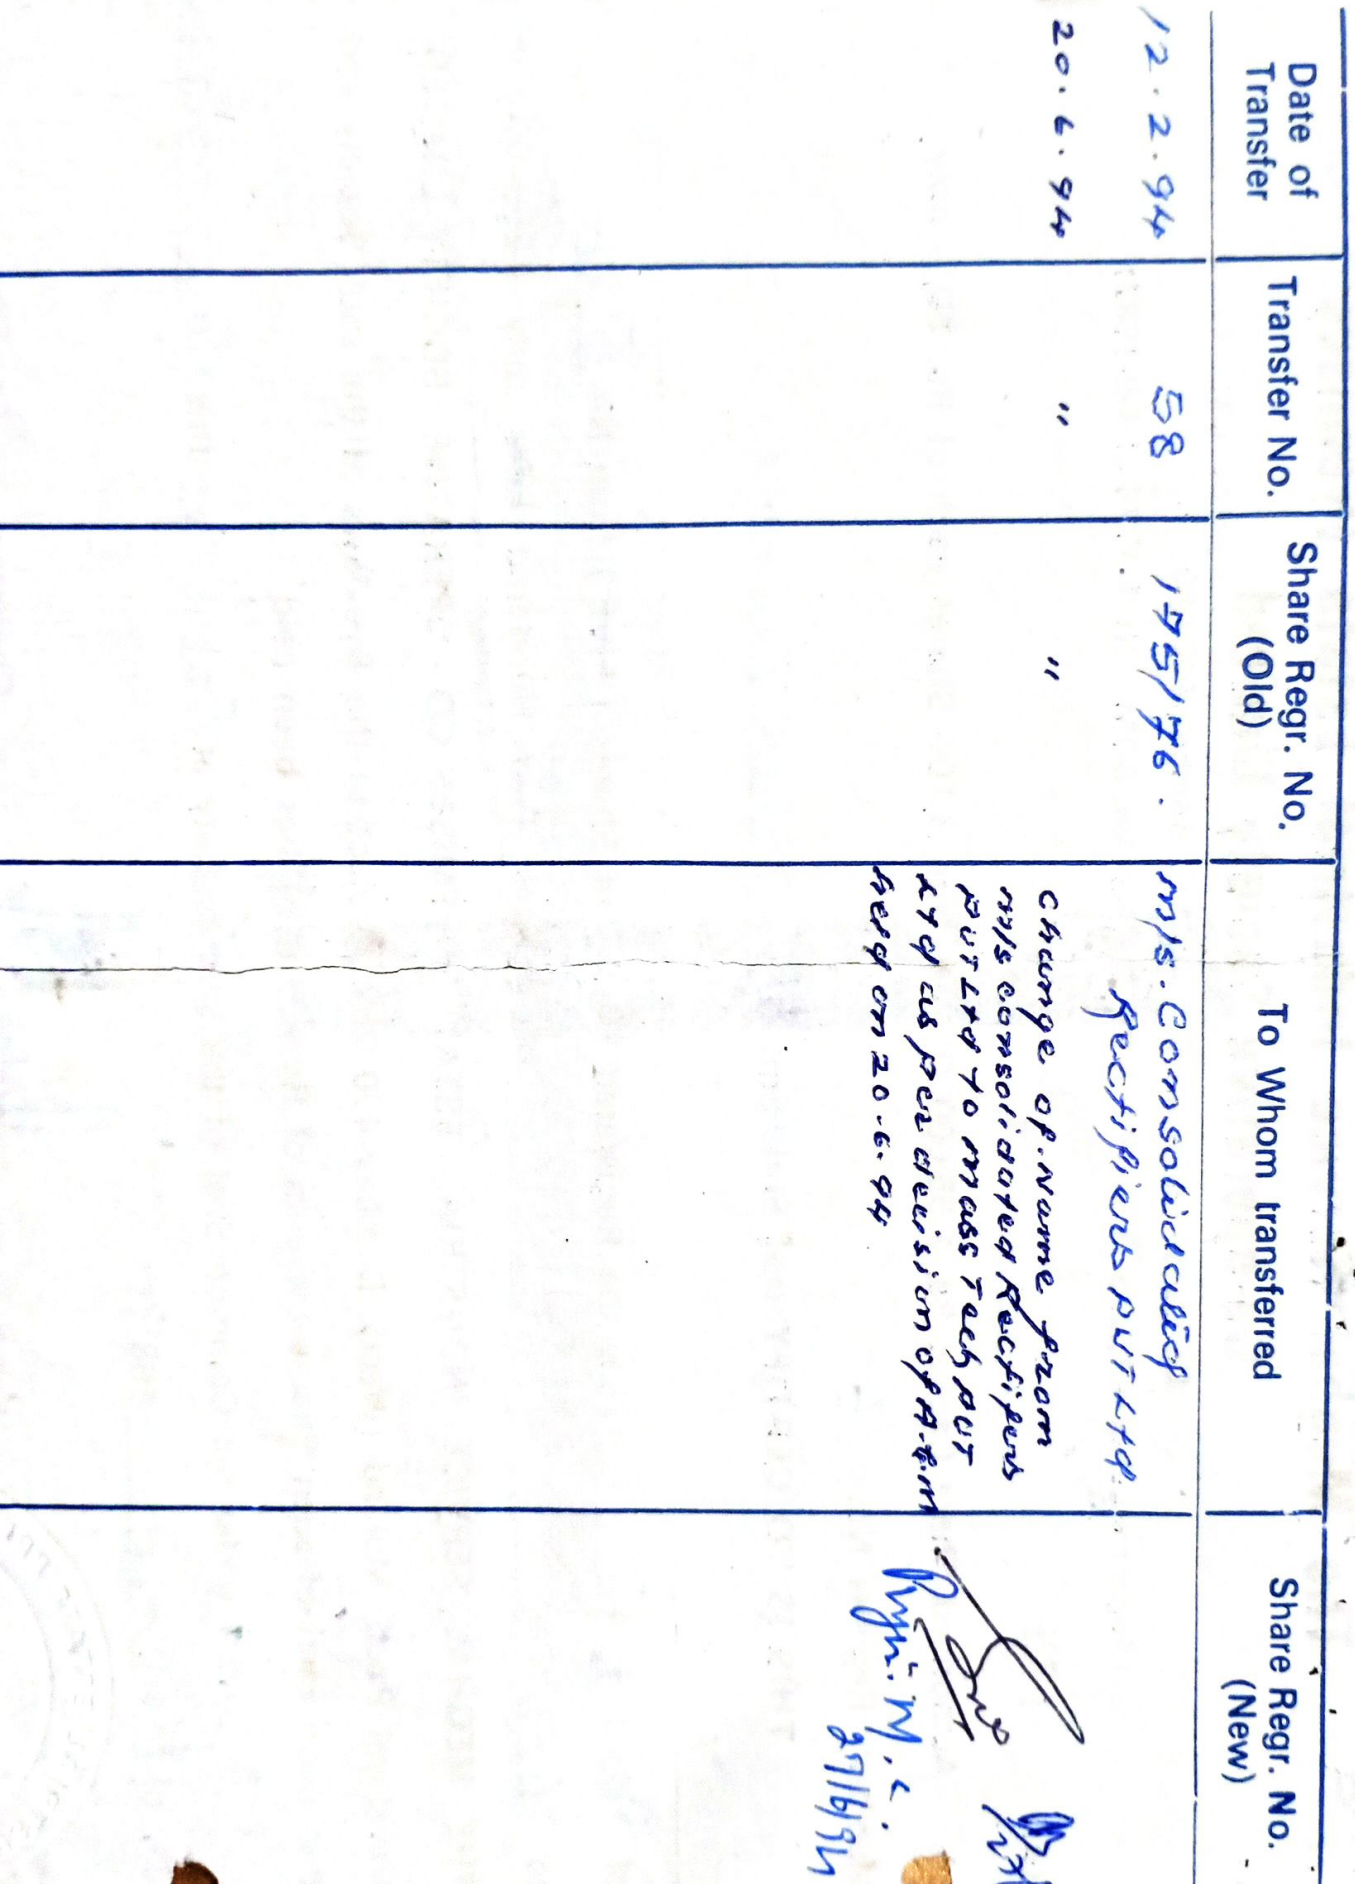 Date of
Transfer
Transfer No.
Share Regr. No.
(Old)
To Whom transferred
Share Regr. No.
(New)
12.2.94
58
175/76.
M/s. Consolidated
Rectifiers PVT Ltd.
20.6.94
"
"
change of Name from
M/s consolidated Rectifiers
PVT Ltd to Mass Tech PVT
Ltd as per decision of A.G.M
held on 20.6.94
27/6/94